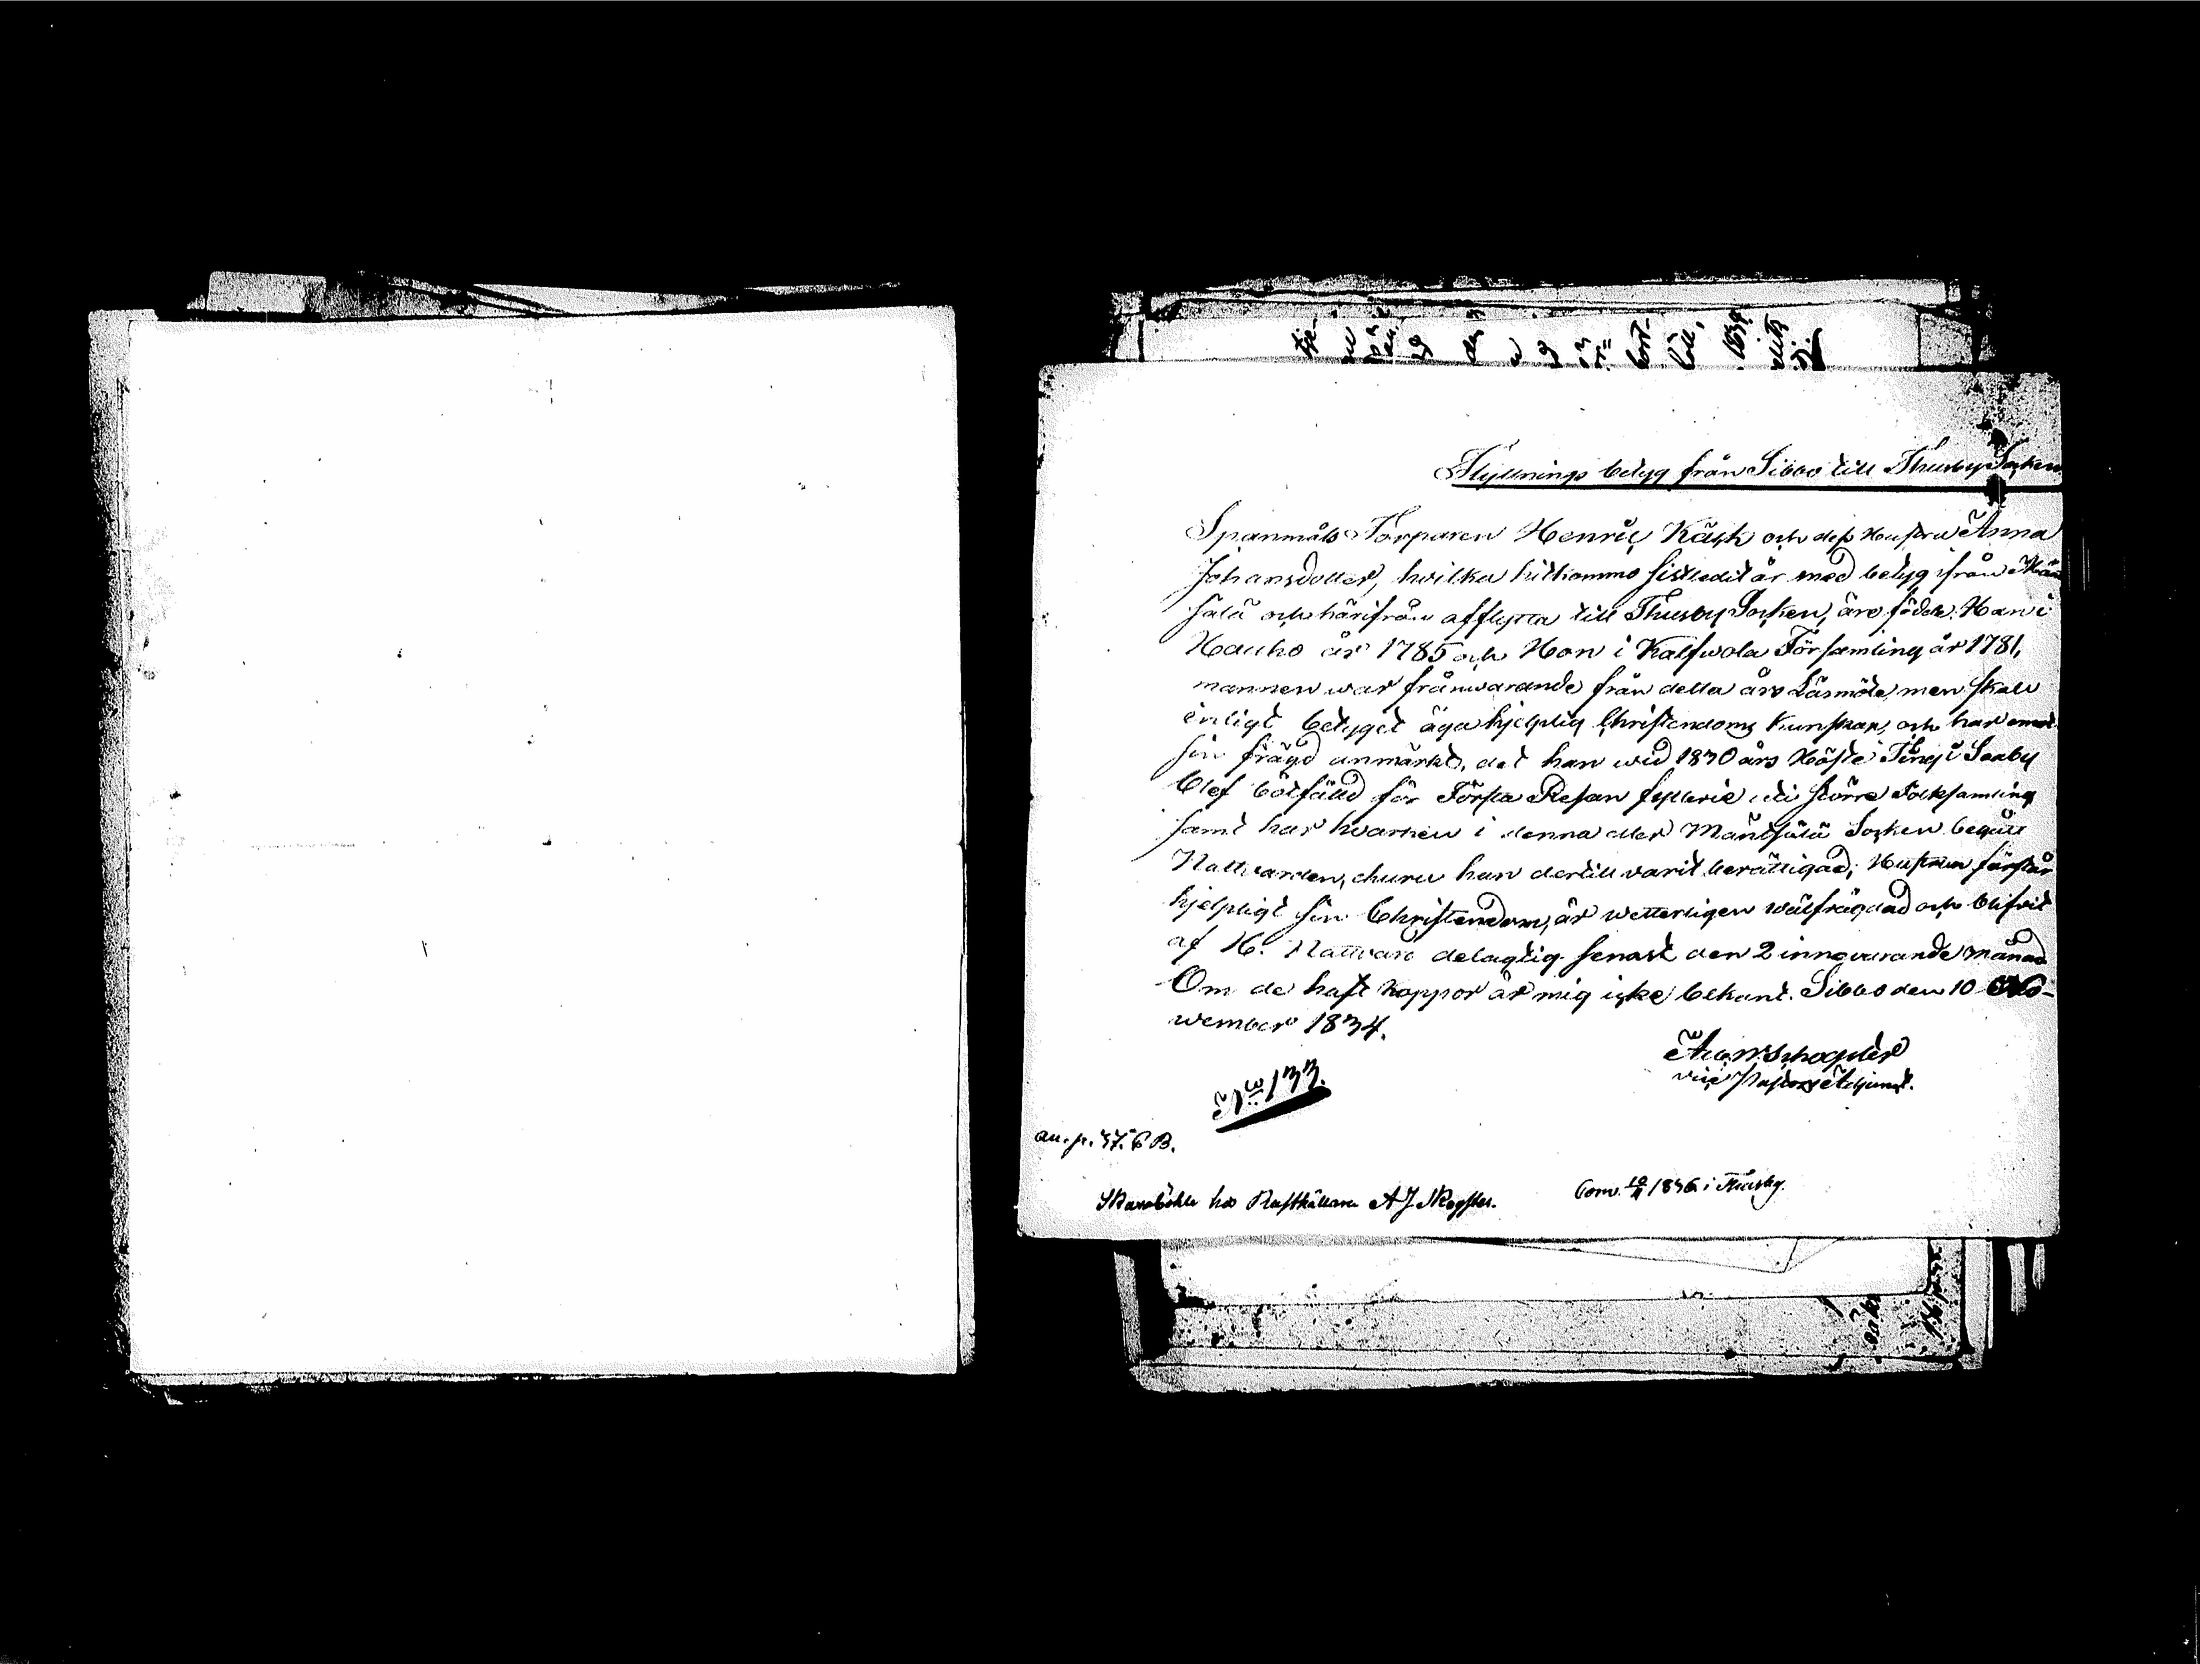 Flyttnings betyg från Sibbo till Thusby Socken
Spanmåls Torparen Henric Käck och dess Hustru Anna
Johansdotter, hvilka hitkommo sistledit år med betyg ifrån
sälä och härifrån afflytta till Thusby Socken, äro födde: Han i
Hauho år 1785 och Hon i Kalfwola Församling år 1781,
mannen war frånwarande från detta års Läsmöte, men skall
enligt betyget äga hjelplig Christendoms Kunskap, och har emot
sin frägd anmärkt, det han wid 1830 års Höste Ting i Saxby
blef bötfälld för Första Resan fylleri uti större Folksamling
samt har hvarken i denna eller Mäntsälä Socken begått
Nattvarden, ehuru han dertill varit berättigad; Hustrun förstår
hjelpligt sin Christendom, är wetterligen wälfrägdad och blifvit
af H. Nattvard delagtig senast den 2 innevarande månad
Om de haft koppor är mig icke bekant. Sibbo den 10 No-
wember 1834.
vice Pastors Adjunct.
No 133.
an. p. 37. C B.
hos A J Skogster.
Com. 1836 i Thusby.